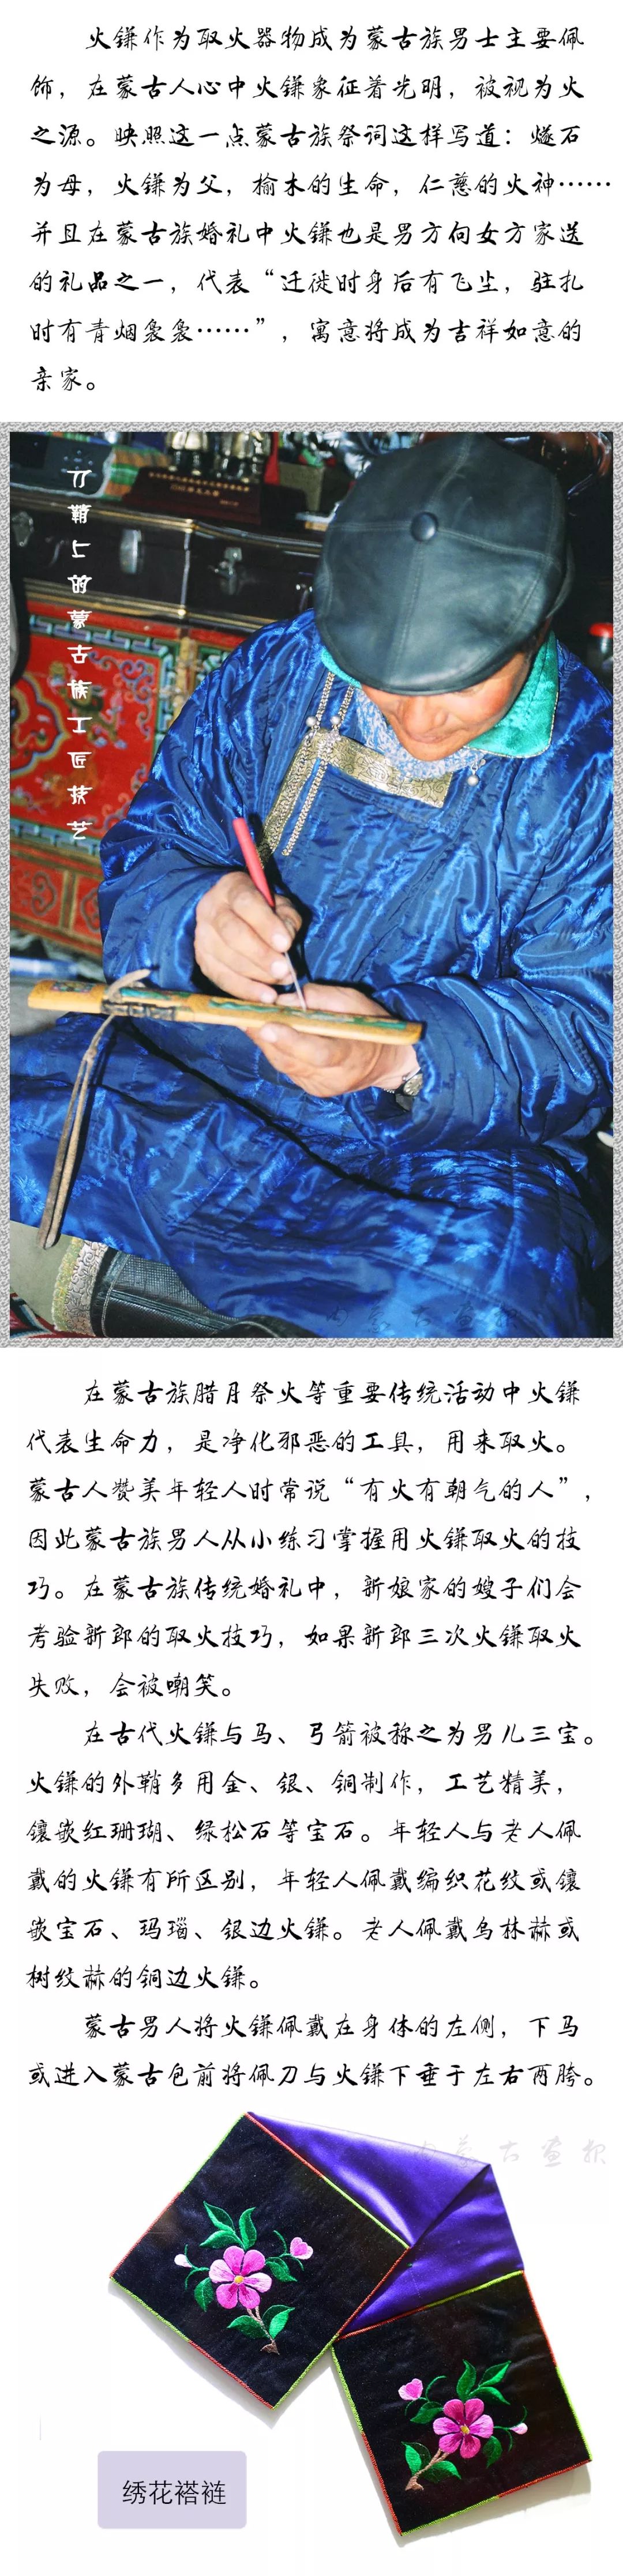 火镰作为取火器物成为蒙古族男士主要佩
饰，在蒙古人心中火镰象征着光明，被视为火
之源。映照这一点蒙古族祭词这样写道：燧石
为母，火镰为父，榆木的生命，仁慈的火神……
并且在蒙古族婚礼中火镰也是男方向女方家送
的礼品之一，代表“迁徙时身后有飞尘，驻扎
时有青烟袅袅……”，寓意将成为吉祥如意的
亲家。
刀鞘上的蒙古族工匠技艺
内蒙古画报
在蒙古族腊月祭火等重要传统活动中火镰
代表生命力，是净化邪恶的工具，用来取火。
蒙古人赞美年轻人时常说“有火有朝气的人”，
因此蒙古族男人从小练习掌握用火镰取火的技
巧。在蒙古族传统婚礼中，新娘家的嫂子们会
考验新郎的取火技巧，如果新郎三次火镰取火
失败，会被嘲笑。
在古代火镰与马、弓箭被称之为男儿三宝。
火镰的外鞘多用金、银、铜制作，工艺精美，
镶嵌红珊瑚、绿松石等宝石。年轻人与老人佩
戴的火镰有所区别，年轻人佩戴编织花纹或镶
嵌宝石、玛瑙、银边火镰。老人佩戴乌林赫或
树纹赫的铜边火镰。
蒙古男人将火镰佩戴在身体的左侧，下马
或进入蒙古包前将佩刀与火镰下垂于左右两胯。
内蒙古画报
绣花褡裢